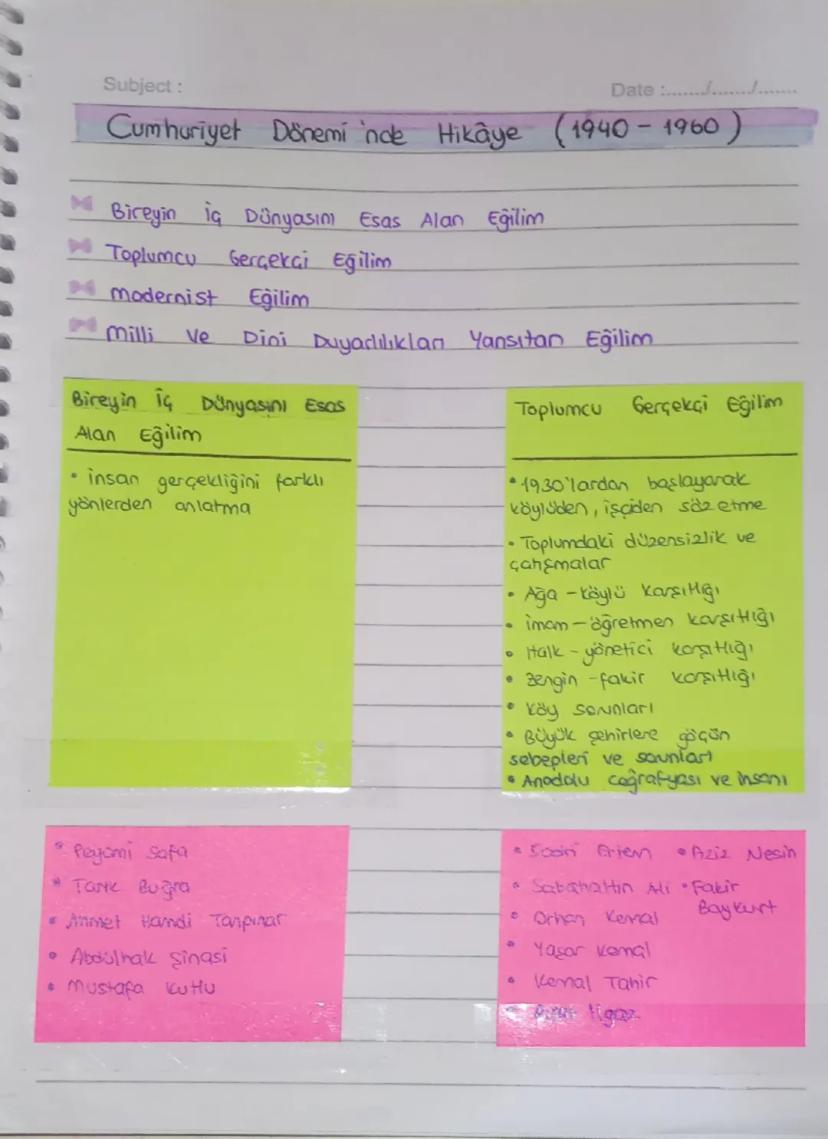 Subject :
Date :......./......./.......
Cumhuriyet Dönemi'nde Hikâye (1940 - 1960)
Bireyin İç Dünyasını Esas Alan Eğilim
Toplumcu Gerçekçi Eğilim
Modernist Eğilim
Milli ve Dini Duyarlılıkları Yansıtan Eğilim
Bireyin İç Dünyasını Esas
Alan Eğilim
• insan gerçekliğini farklı
yönlerden anlatma
Toplumcu Gerçekçi Eğilim
• 1930'lardan başlayarak
köylüden, işçiden söz etme
• Toplumdaki düzensizlik ve
çatışmalar
• Ağa - köylü karşıtlığı
• imam - öğretmen karşıtlığı
• Halk - yönetici karşıtlığı
• Zengin - fakir karşıtlığı
• Köy sorunları
• Büyük şehirlere göçün
sebepleri ve sorunları
• Anadolu coğrafyası ve insanı
• Peyami Safa
• Tarık Buğra
• Ahmet Hamdi Tanpınar
• Abdülhak Şinasi
• Mustafa Kutlu
• Sadri Ertem • Aziz Nesin
• Sabahattin Ali • Fakir
Baykurt
• Orhan Kemal
• Yaşar Kemal
• Kemal Tahir
• Rıfat Ilgaz